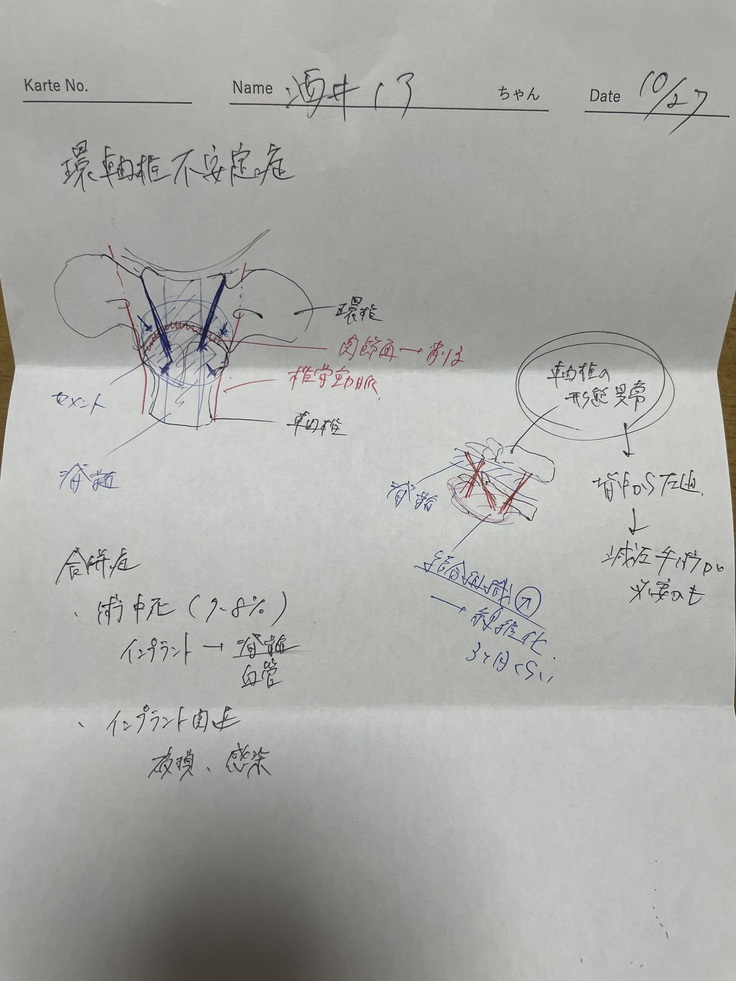 Karte No.
Name 酒井 ちゃん
Date 10/27
環軸椎不安定症
環椎
関節面→削る
椎骨動脈
セメント
軸椎
脊髄
軸椎の
形態異常
脊髄
背中から圧迫
↓
減圧手術が
必要かも
結合組織↗
→ 線維化
3ヶ月くらい
合併症
・術中死(7-8%)
インプラント→脊髄
血管
・インプラント関連
破損、感染